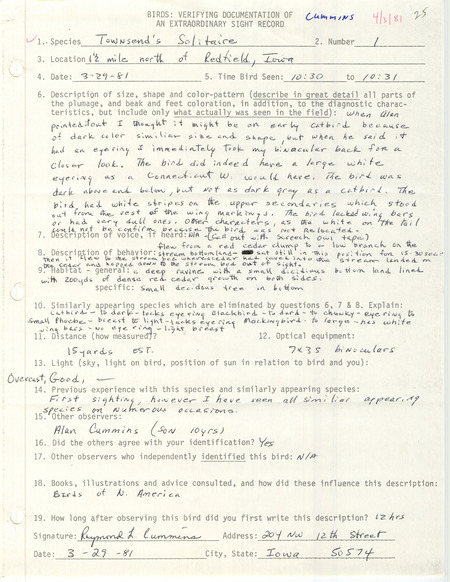 BIRDS: VERIFYING DOCUMENTATION OF
AN EXTRAORDINARY SIGHT RECORD
Cummins 4/2/81 25
1. Species Townsend's Solitaire 2. Number 1
3. Location 1½ mile north of Redfield, Iowa
4. Date: 3-29-81 5. Time Bird Seen: 10:30 to 10:31
6. Description of size, shape and color-pattern (describe in great detail all parts of
the plumage, and beak and feet coloration, in addition, to the diagnostic charac-
teristics, but include only what actually was seen in the field): when Alan
pointed out I thought it might be an early catbird because
of dark color similiar size and shape, but when he said it
had an eyering I immediately took my binocular back for a
closer look. The bird did indeed have a large white
eyering as a Connecticut W. would have. The bird was
dark above and below, but not as dark gray as a catbird. The
bird, had white stripes on the upper secondaries which stood
out from the rest of the wing markings. The bird lacked wing bars
or had very dull ones. other characters, as the white on the tail
could not be confirm because the bird was not relocated.
7. Description of voice, if heard: NA (call out with screech owl tape)
8. Description of behavior: flew from a red cedar clump to a low branch on the
stream bottomland set still in this position for 15-30 sec
then it flew to the stream bed landed in
the cedar and hopped down to the stream bed out of sight.
9. Habitat - general: a deep ravine with a small dicidious bottom land lined
with 200yds of dense red cedar growth on both sides.
specific: small decidous tree in bottom
10. Similarly appearing species which are eliminated by questions 6, 7 & 8. Explain:
catbird - to dark - lacks eyering Blackbird - to dard - to chunky - eyering to
small Phoebe - breast to light - lacks eyering Mockingbird - to large - has white
wing bars - no eye ring - light breast
11. Distance (how measured)? 12. Optical equipment:
15 yards EST. 7x35 binoculars
13. Light (sky, light on bird, position of sun in relation to bird and you):
Overcast, Good, —
14. Previous experience with this species and similarly appearing species:
First sighting, however I have seen all similier appearing
species on numerous occasions.
15. Other observers:
Alan Cummins (son 10yrs)
16. Did the others agree with your identification? Yes
17. Other observers who independently identified this bird: N/A
18. Books, illustrations and advice consulted, and how did these influence this description:
Birds of N. America
19. How long after observing this bird did you first write this description? 12 hrs
Signature: Raymond L. Cummins Address: 204 NW 12th Street
Date: 3-29-81 City, State: Iowa 50574